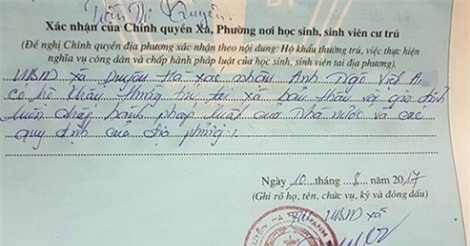 Trần Di Quyên
Xác nhận của Chính quyền Xã, Phường nơi học sinh, sinh viên cư trú
(Đề nghị Chính quyền địa phương xác nhận theo nội dung: Hộ khẩu thường trú, việc thực hiện
nghĩa vụ công dân và chấp hành pháp luật của học sinh, sinh viên tại địa phương).
UBND xã Duyên Hà xác nhận Anh Ngô Việt
có hộ khẩu thường trú tại xã bản thân và gia đình
luôn chấp hành pháp luật của Nhà nước và các
quy định của địa phương
Ngày 10 tháng 8 năm 2017
(Ghi rõ họ, tên, chức vụ, ký và đóng dấu)
UBND xã